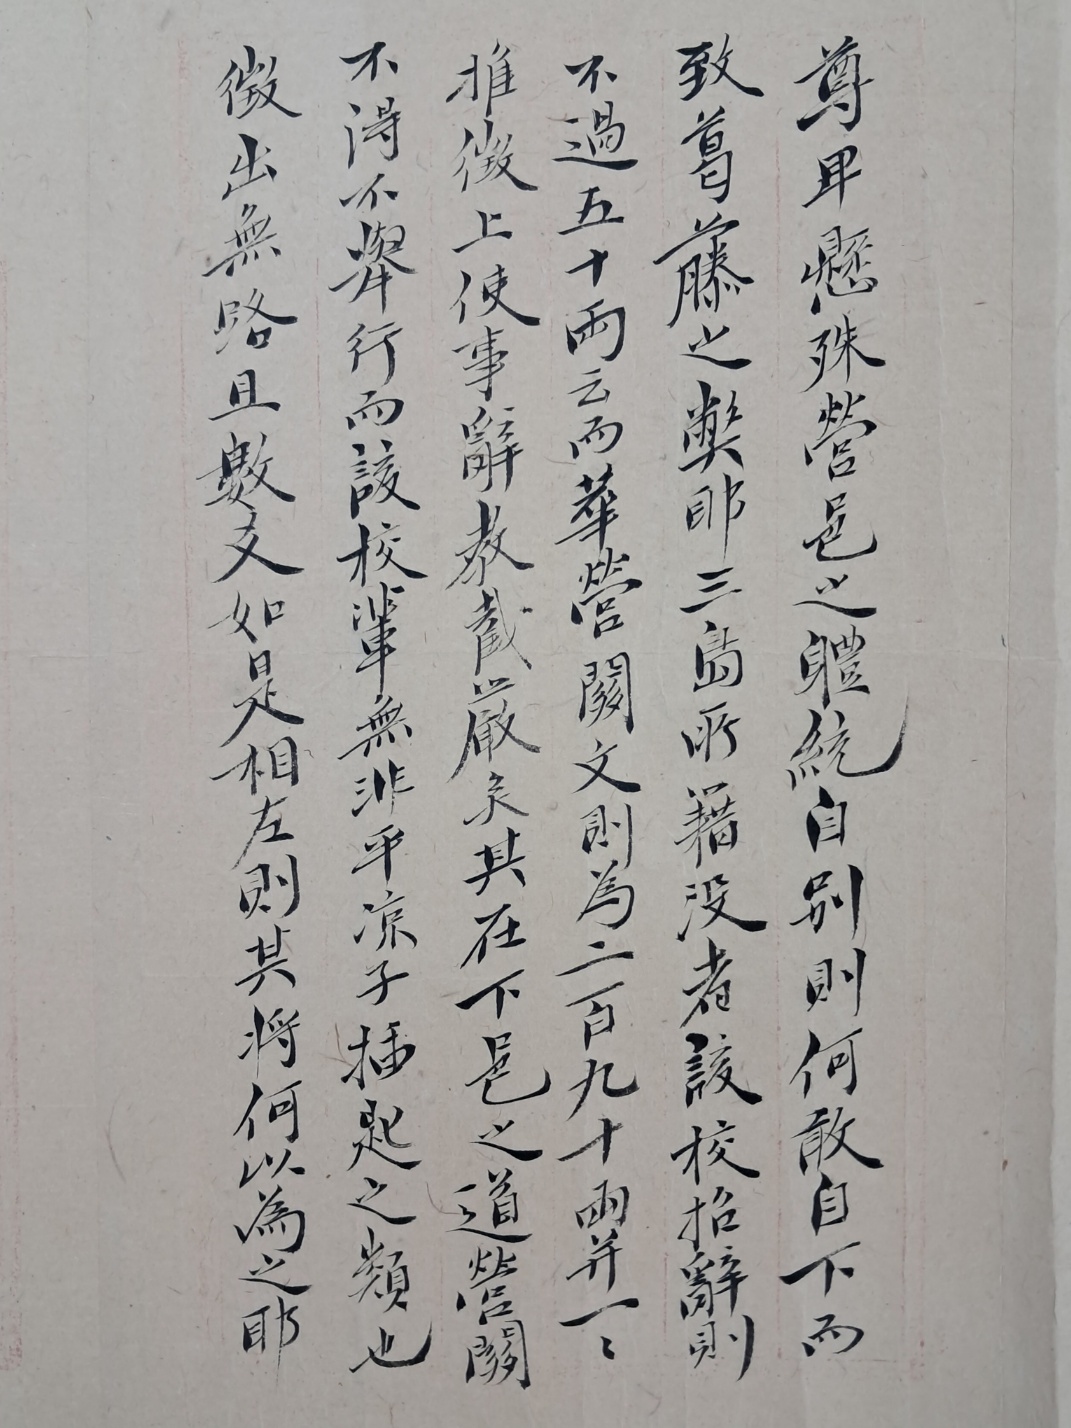 尊卑懸殊營邑之軆統自別則何敢自下而
致葛藤之弊耶三島所籍沒者該校招辭則
不過五十兩云而華營關文則為二百九十兩并一〻
推徵上使事辭教截嚴矣其在下邑之道營關
不得不擧行而該校輩無非平凉子插匙之類也
徵出無路且數爻如是相左則其將何以為之耶